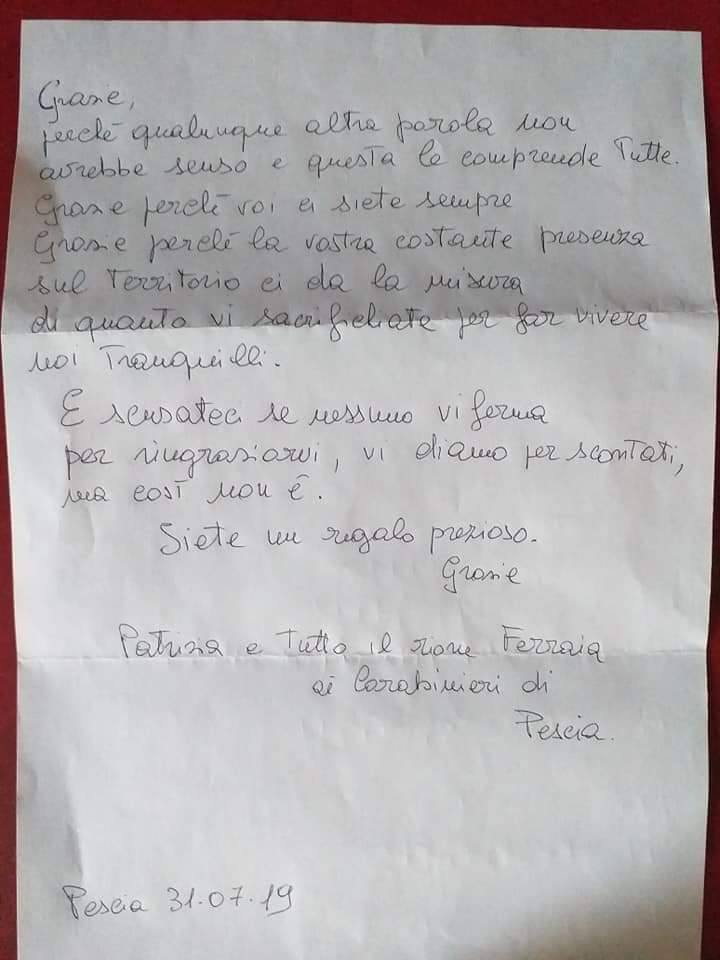 Grazie,
perché qualunque altra parola non
avrebbe senso e questa le comprende Tutte.
Grazie perché voi ci siete sempre
Grazie perché la vostra costante presenza
sul Territorio ci da la misura
di quanto vi sacrifichiate per far vivere
noi Tranquilli.
E scusateci se nessuno vi ferma
per ringraziarvi, vi diamo per scontati,
ma così non é.
Siete un regalo prezioso.
Grazie
Patrizia e Tutto il rione Ferraia
ai Carabinieri di
Pescia.
Pescia 31.07.19